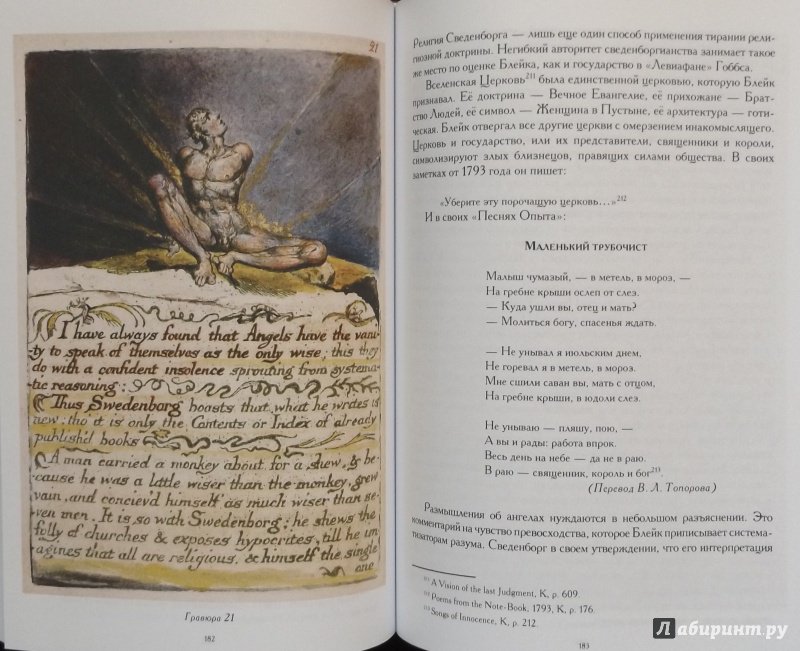 21
I have always found that Angels have the vani-
ty to speak of themselves as the only wise; this they
do with a confident insolence sprouting from systema-
tic reasoning:
Thus Swedenborg boasts that what he writes is
new: tho it is only the Contents or Index of already
publish'd books
A man carried a monkey about for a shew, & be-
cause he was a little wiser than the monkey, grew
vain, and conciev'd himself as much wiser than se-
ven men. It is so with Swedenborg; he shews the
folly of churches & exposes hypocrites, till he im-
agines that all are religious, & himself the single
one
Гравюра 21
182
Религия Сведенборга — лишь еще один способ применения тирании рели-
гиозной доктрины. Негибкий авторитет сведенборгианства занимает такое
же место по оценке Блейка, как и государство в «Левиафане» Гоббса.
Вселенская Церковь²¹¹ была единственной церковью, которую Блейк
признавал. Её доктрина — Вечное Евангелие, её прихожане — Брат-
ство Людей, её символ — Женщина в Пустыне, её архитектура — готи-
ческая. Блейк отвергал все другие церкви с омерзением инакомыслящего.
Церковь и государство, или их представители, священники и короли,
символизируют злых близнецов, правящих силами общества. В своих
заметках от 1793 года он пишет:
«Уберите эту порочащую церковь...»²¹²
И в своих «Песнях Опыта»:
Маленький трубочист
Малыш чумазый, — в метель, в мороз, —
На гребне крыши ослеп от слез.
— Куда ушли вы, отец и мать?
— Молиться богу, спасенья ждать.
— Не унывал я июльским днем,
Не горевал я в метель, в мороз.
Мне сшили саван вы, мать с отцом,
На гребне крыши, в юдоли слез.
Не унываю — пляшу, пою, —
А вы и рады: работа впрок.
Весь день на небе — да не в раю.
В раю — священник, король и бог²¹³.
(Перевод В. Л. Топорова)
Размышления об ангелах нуждаются в небольшом разъяснении. Это
комментарий на чувство превосходства, которое Блейк приписывает система-
тизаторам разума. Сведенборг в своем утверждении, что его интерпретация
²¹¹ A Vision of the last Judgment, K, p. 609.
²¹² Poems from the Note-Book, 1793, K, p. 176.
²¹³ Songs of Innocence, K, p. 212.
183
Лабиринт.ру